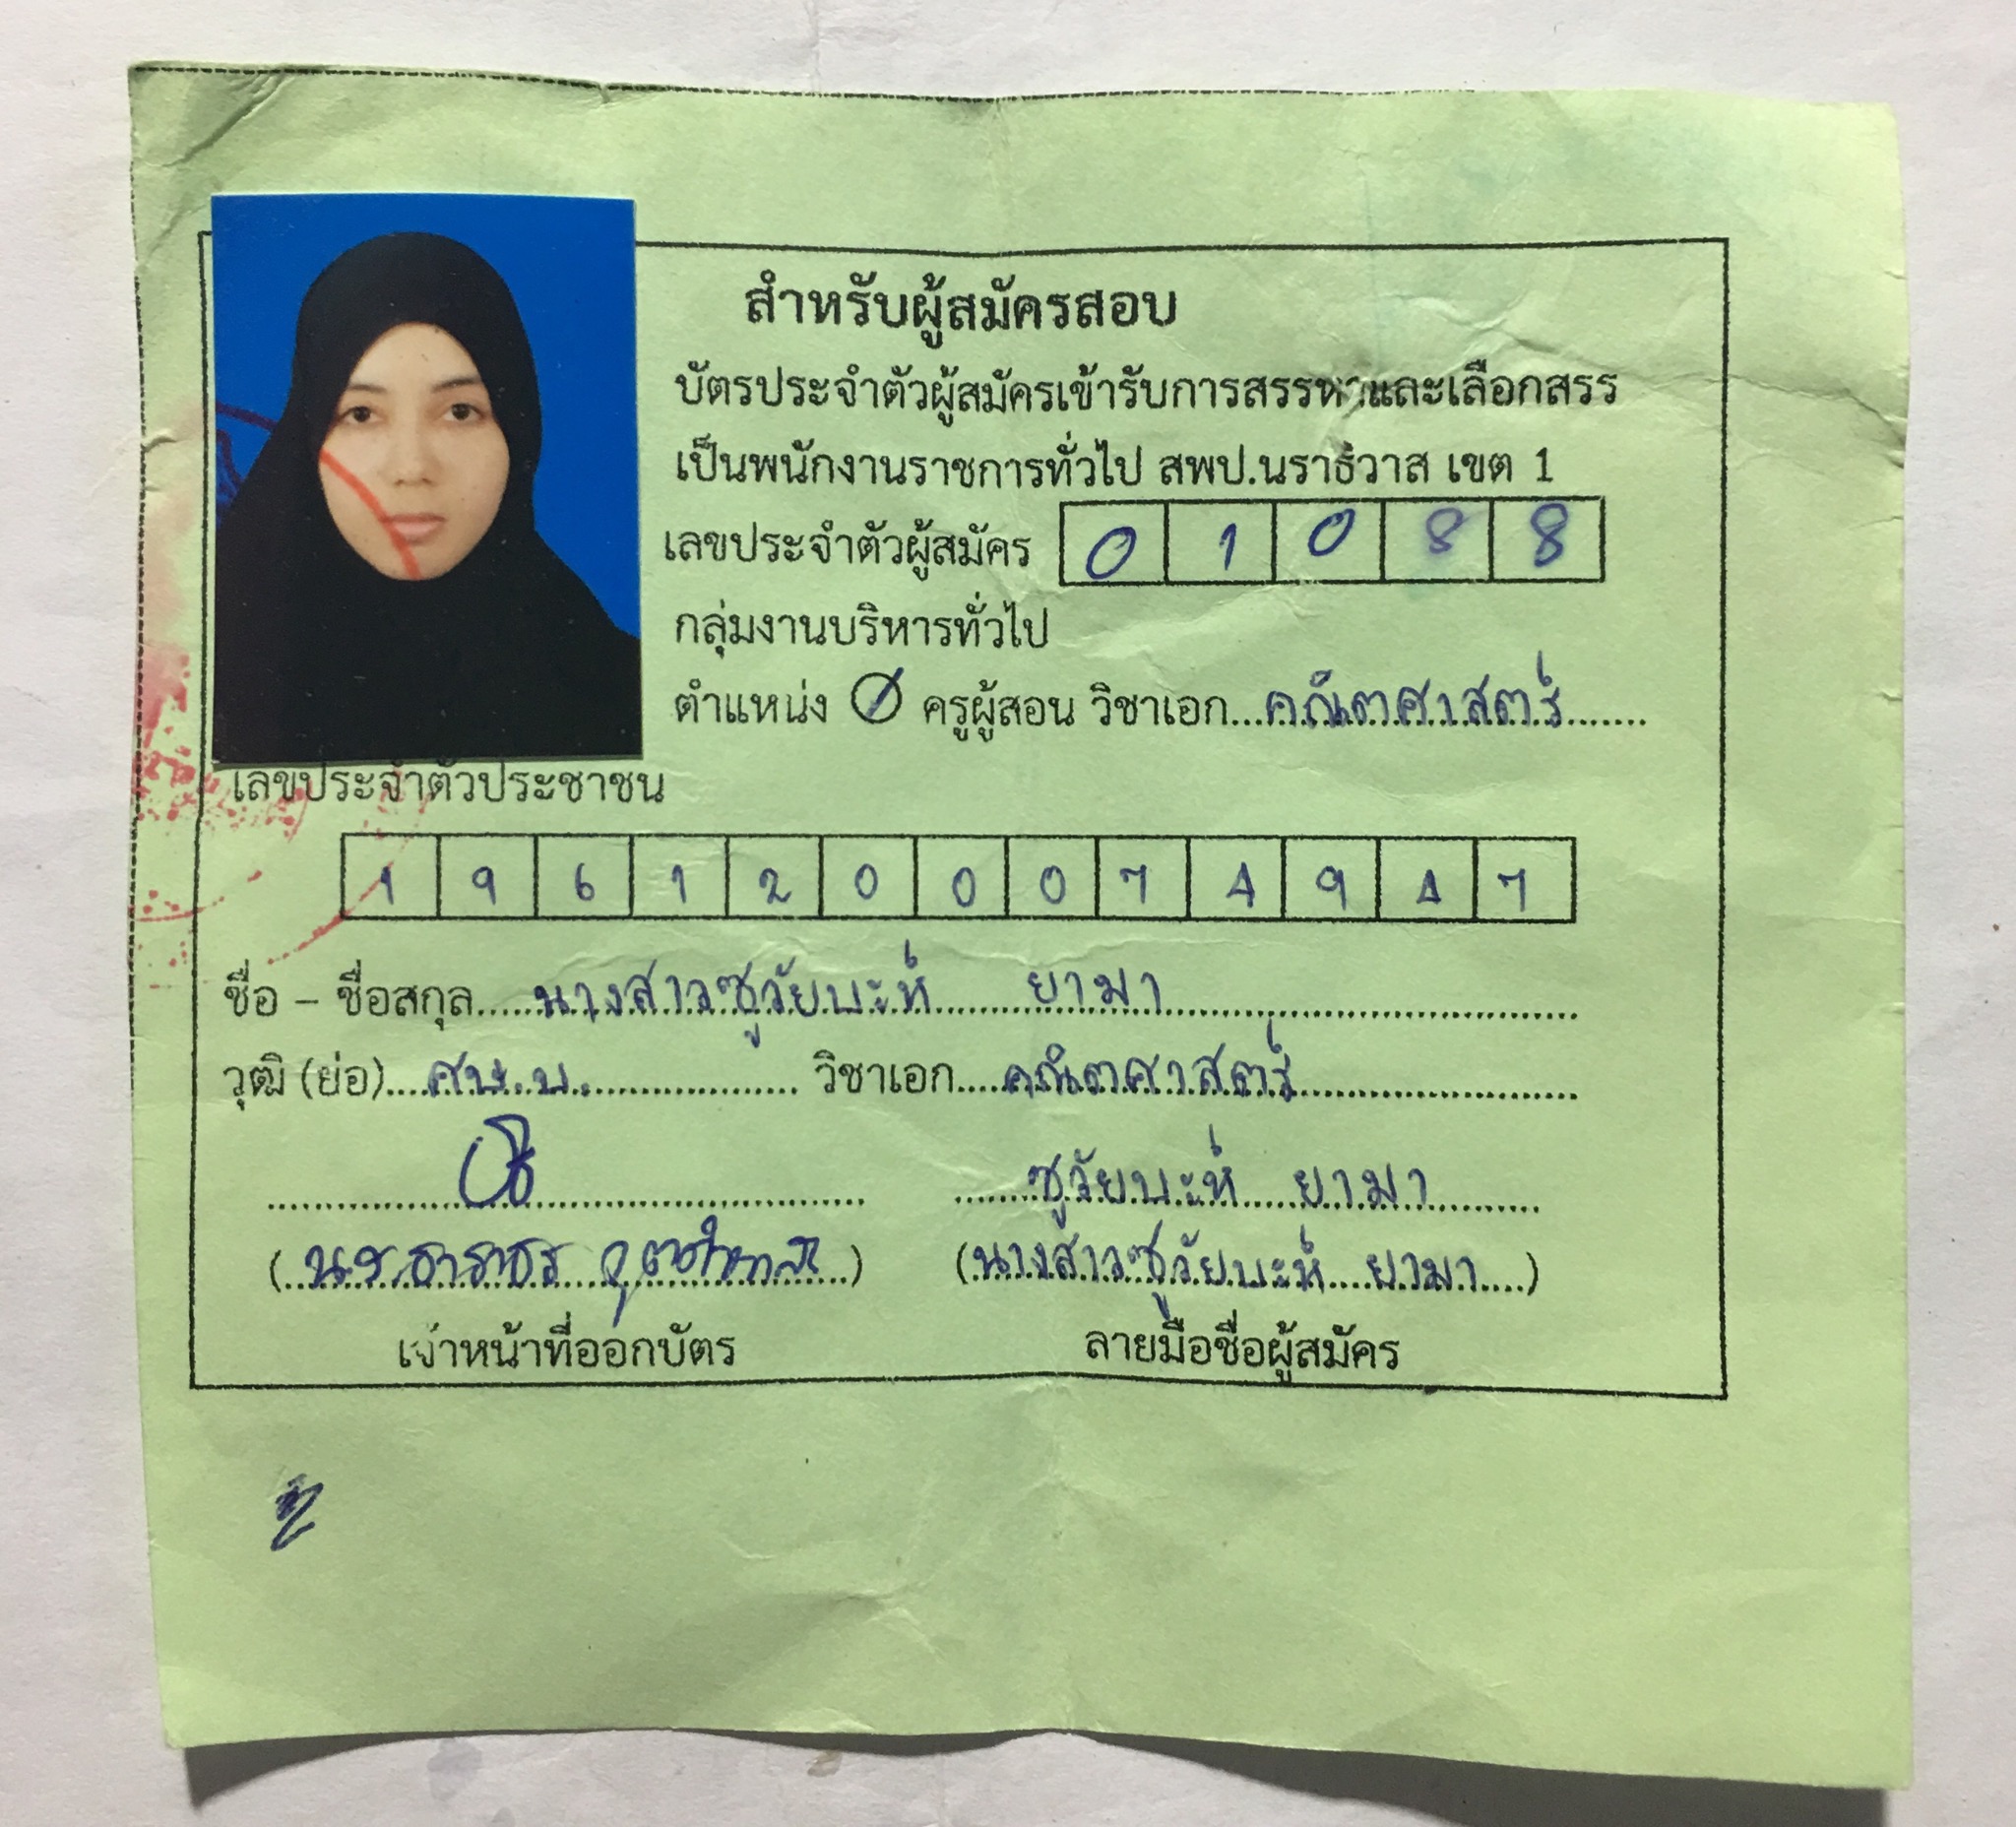 สำหรับผู้สมัครสอบ
บัตรประจำตัวผู้สมัครเข้ารับการสรรหาและเลือกสรร
เป็นพนักงานราชการทั่วไป สพป.นราธิวาส เขต 1
เลขประจำตัวผู้สมัคร 0 1 0 8 8
กลุ่มงานบริหารทั่วไป
ตำแหน่ง ครูผู้สอน วิชาเอก...คณิตศาสตร์.......
เลขประจำตัวประชาชน
1 9 6 1 2 0 0 0 7 4 9 4 7
ชื่อ - ชื่อสกุล.....นางสาวซูวัยบะห์......ยามา..............................
วุฒิ (ย่อ)....ศษ.บ................... วิชาเอก....คณิตศาสตร์.....................
ซูวัยบะห์ ยามา
(นางสาวซูวัยบะห์....ยามา....)
เจ้าหน้าที่ออกบัตร ลายมือชื่อผู้สมัคร